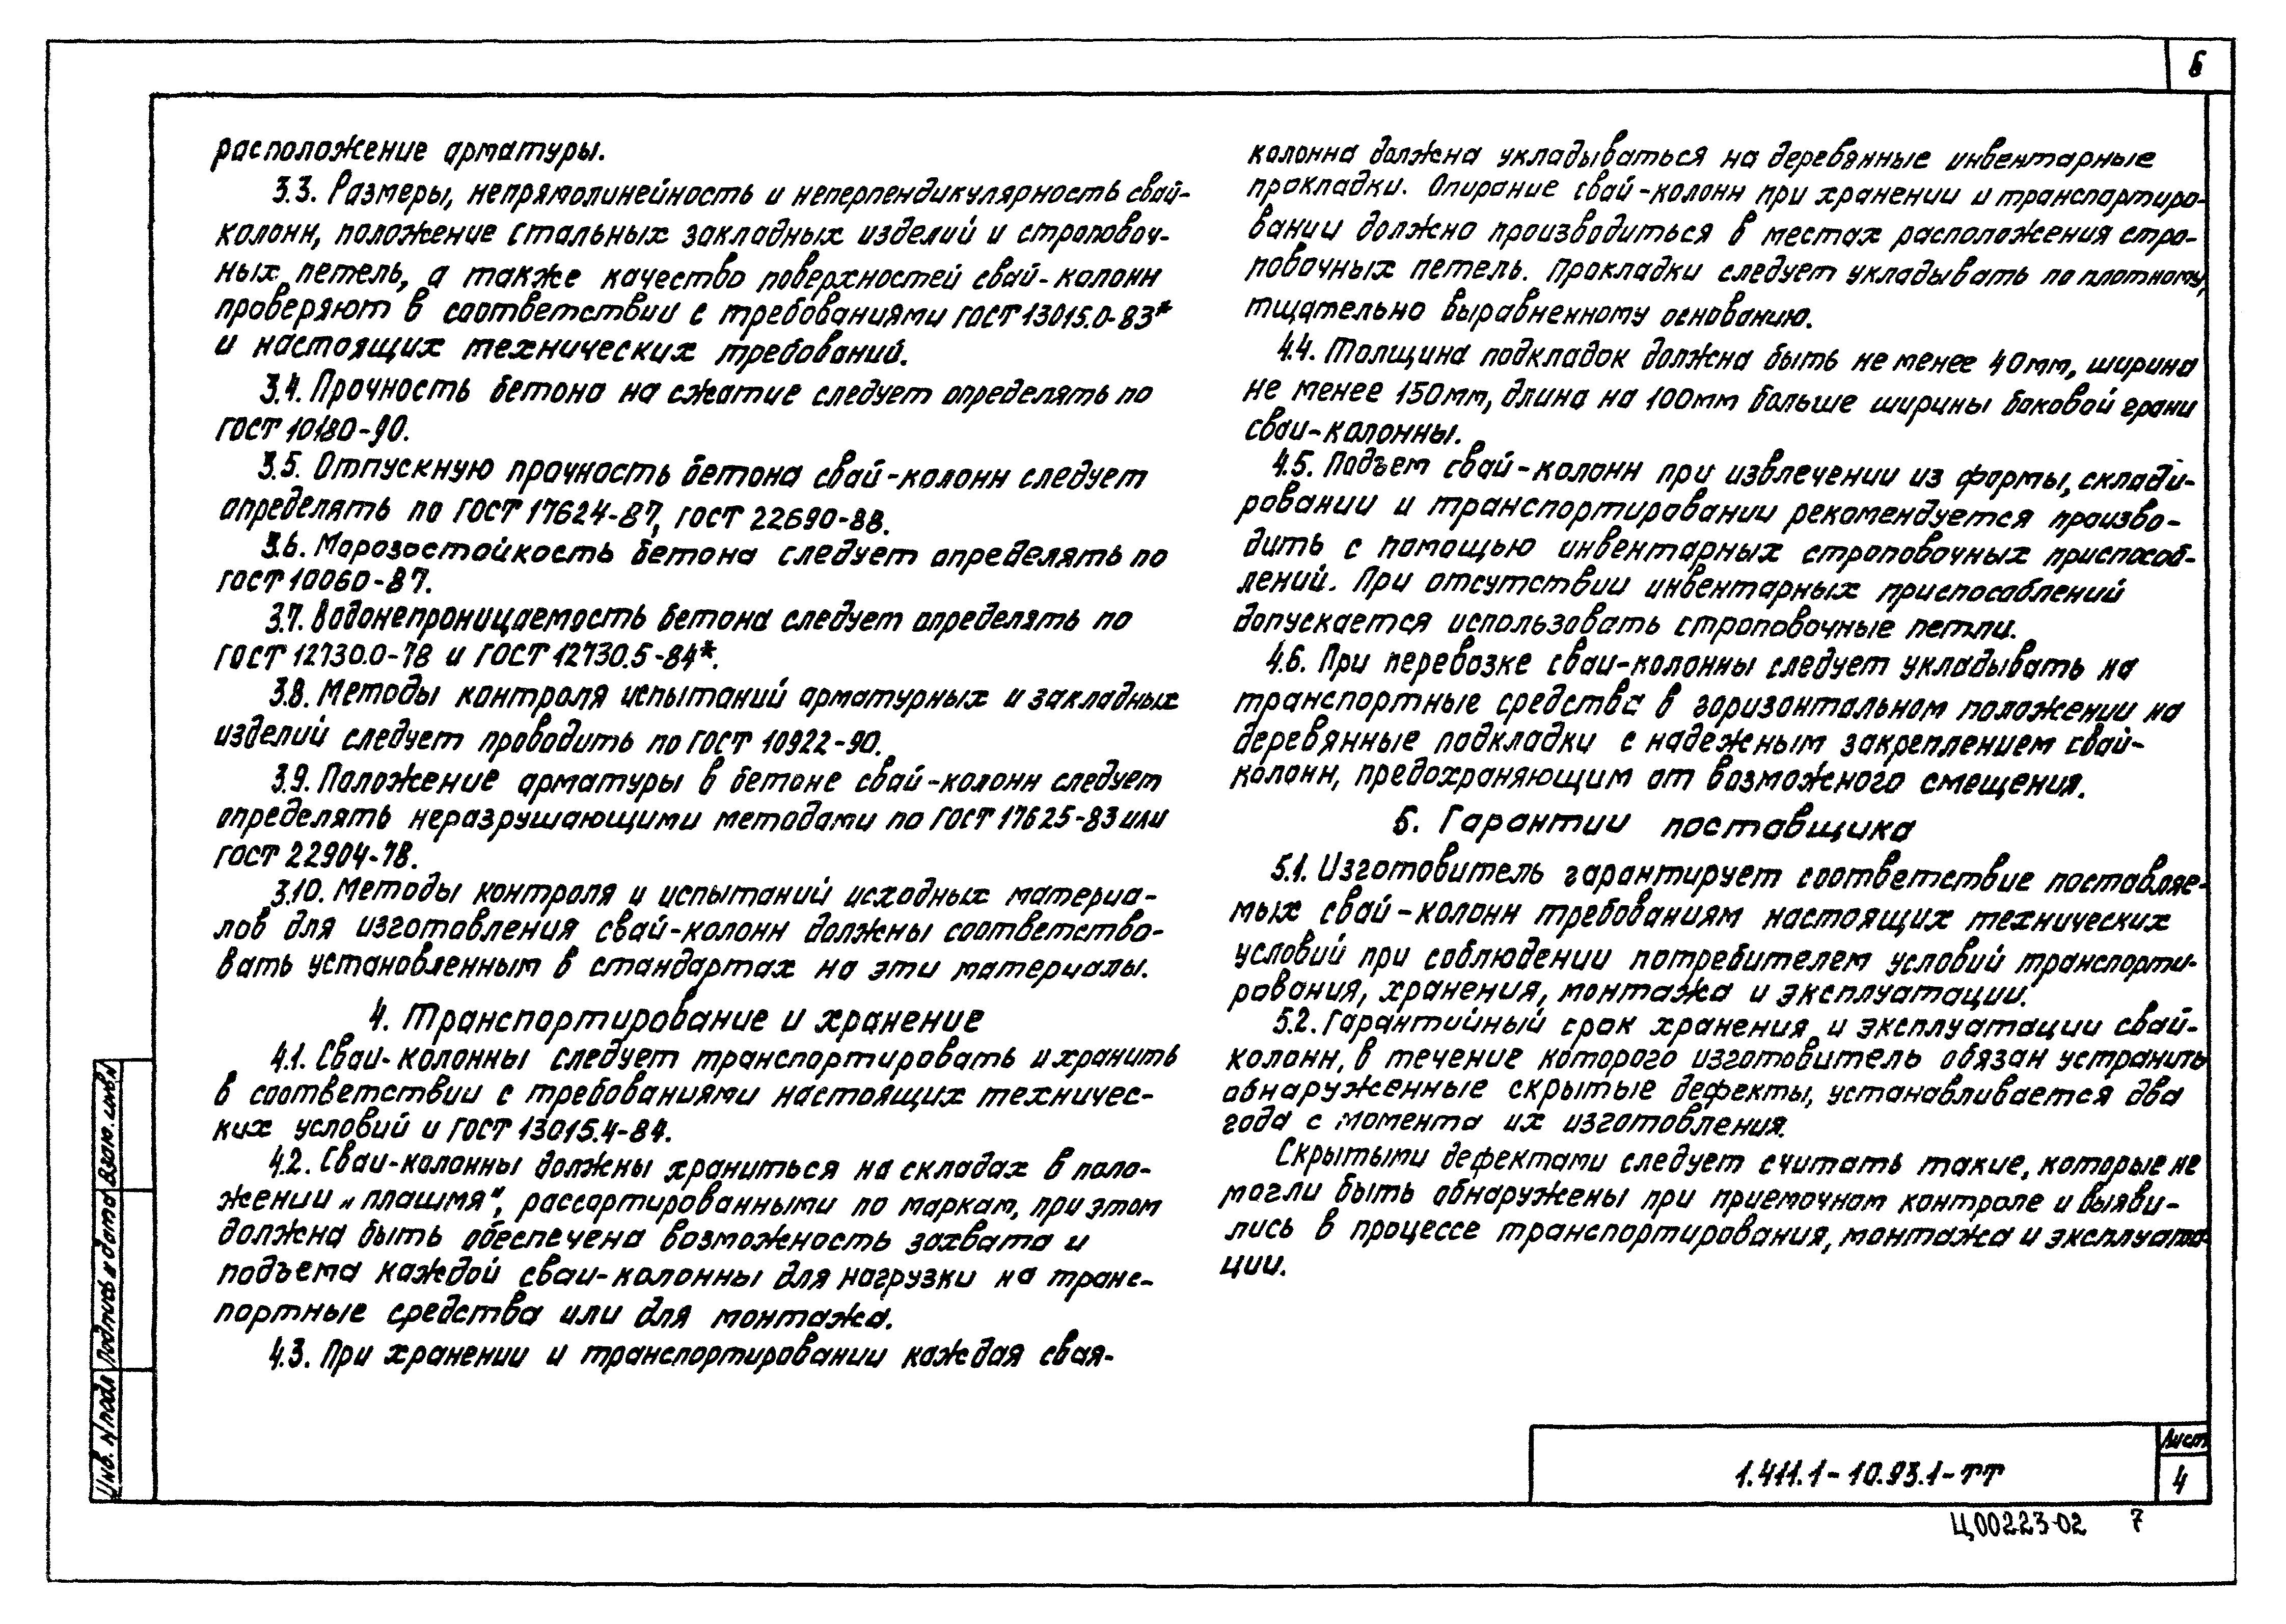 6
расположение арматуры.
3.3. Размеры, непрямолинейность и неперпендикулярность свай-
колонн, положение стальных закладных изделий и строповоч-
ных петель, а также качество поверхностей свай-колонн
проверяют в соответствии с требованиями ГОСТ 13015.0-83*
и настоящих технических требований.
3.4. Прочность бетона на сжатие следует определять по
ГОСТ 10180-90.
3.5. Отпускную прочность бетона свай-колонн следует
определять по ГОСТ 17624-87, ГОСТ 22690-88.
3.6. Морозостойкость бетона следует определять по
ГОСТ 10060-87.
3.7. Водонепроницаемость бетона следует определять по
ГОСТ 12730.0-78 и ГОСТ 12730.5-84*.
3.8. Методы контроля испытаний арматурных и закладных
изделий следует проводить по ГОСТ 10922-90.
3.9. Положение арматуры в бетоне свай-колонн следует
определять неразрушающими методами по ГОСТ 17625-83 или
ГОСТ 22904-78.
3.10. Методы контроля и испытаний исходных материа-
лов для изготовления свай-колонн должны соответство-
вать установленным в стандартах на эти материалы.
4. Транспортирование и хранение
4.1. Сваи-колонны следует транспортировать и хранить
в соответствии с требованиями настоящих техничес-
ких условий и ГОСТ 13015.4-84.
4.2. Сваи-колонны должны храниться на складах в поло-
жении „плашмя“, рассортированными по маркам, при этом
должна быть обеспечена возможность захвата и
подъема каждой сваи-колонны для нагрузки на транс-
портные средства или для монтажа.
4.3. При хранении и транспортировании каждая свая-
колонна должна укладываться на деревянные инвентарные
прокладки. Опирание свай-колонн при хранении и транспортиро-
вании должно производиться в местах расположения стро-
повочных петель. Прокладки следует укладывать по плотному,
тщательно выравненному основанию.
4.4. Толщина подкладок должна быть не менее 40мм, ширина
не менее 150мм, длина на 100мм больше ширины боковой грани
сваи-колонны.
4.5. Подъем свай-колонн при извлечении из формы, склади-
ровании и транспортировании рекомендуется произво-
дить с помощью инвентарных строповочных приспособ-
лений. При отсутствии инвентарных приспособлений
допускается использовать строповочные петли.
4.6. При перевозке сваи-колонны следует укладывать на
транспортные средства в горизонтальном положении на
деревянные подкладки с надежным закреплением свай-
колонн, предохраняющим от возможного смещения.
5. Гарантии поставщика
5.1. Изготовитель гарантирует соответствие поставляе-
мых свай-колонн требованиям настоящих технических
условий при соблюдении потребителем условий транспорти-
рования, хранения, монтажа и эксплуатации.
5.2. Гарантийный срок хранения и эксплуатации свай-
колонн, в течение которого изготовитель обязан устранить
обнаруженные скрытые дефекты, устанавливается два
года с момента их изготовления.
Скрытыми дефектами следует считать такие, которые не
могли быть обнаружены при приемочном контроле и выяви-
лись в процессе транспортирования, монтажа и эксплуата-
ции.
Инв. N подл
Подпись и дата
Взам. инв N
1.411.1-10.93.1-ТТ
Лист
4
Ц00223-02 7